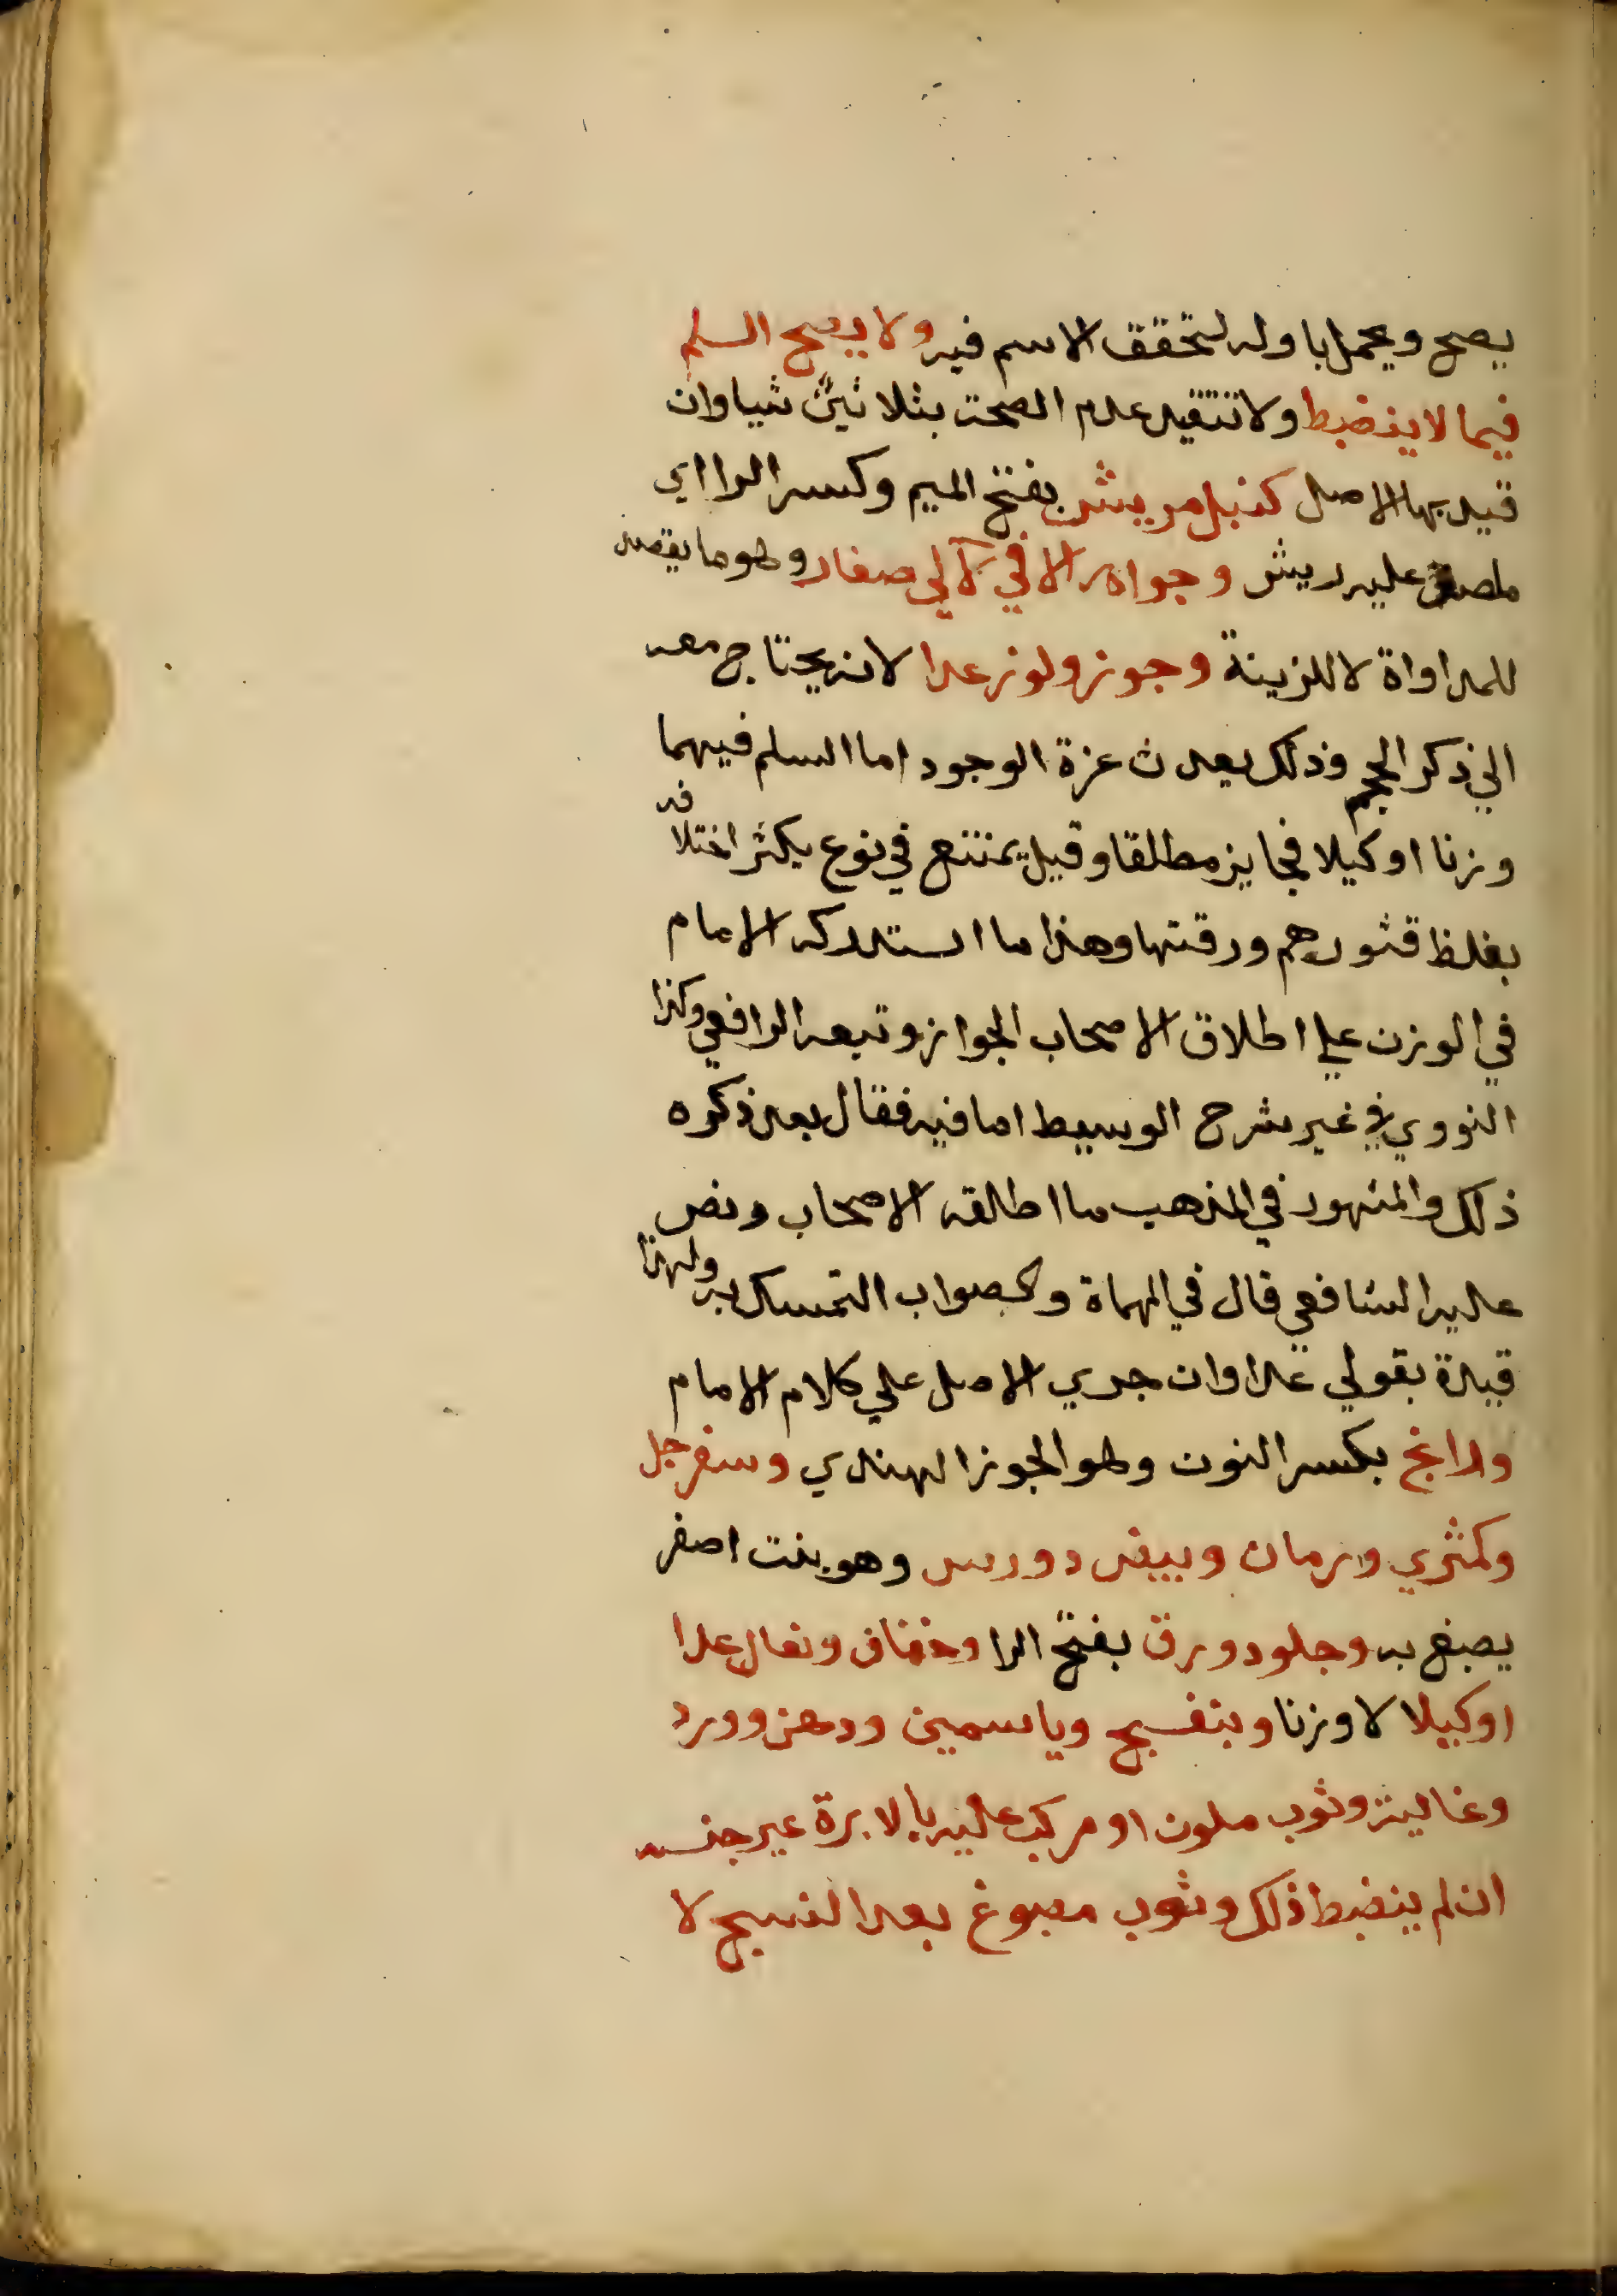 يصح ويحمل باوله لتحقق الاسم فيه ولا يصح السلم
فيما لا ينضبط ولا تتقيد عدم الصحة بثلاثين شيا وان
قيد بها الاصل كنبل مريش بفتح الميم وكسر الرا اي
ملصق عليه ريش وجواهر الا في لآلي صغار وهو ما يقصد
للمداواة لا للزينة وجوز ولوز عدا لانه يحتاج معه
الي ذكر الحجم وذلك يورث عزة الوجود اما السلم فيهما
وزنا او كيلا فجايز مطلقا وقيل يمتنع في نوع يكثر اختلافه
بغلظ قشورهم ورقتها وهذا ما استدركه الامام
في الوزن علي اطلاق الاصحاب الجواز وتبعه الرافعي وكذا
النووي في غير شرح الوسيط اما فيه فقال بعد ذكره
ذلك والمشهور في المذهب ما اطلقه الاصحاب ونص
عليه الشافعي قال في المهماة والصواب التمسك به ولهذا
قيدة بقولي عدا وان جري الاصل علي كلام الامام
ورانج بكسر النون وهو الجوز الهندي وسفرجل
وكمثري ورمان وبيض وورس وهو بنت اصفر
يصبغ به وجلود ورق بفتح الرا وخفاف ونعال عدا
او كيلا لا وزنا وبنفسج وياسمين ودهن وورد
وغالية وثوب ملون او مركب عليه بالابرة غير جنسه
ان لم ينضبط ذلك وثوب مصبوغ بعد النسج لا